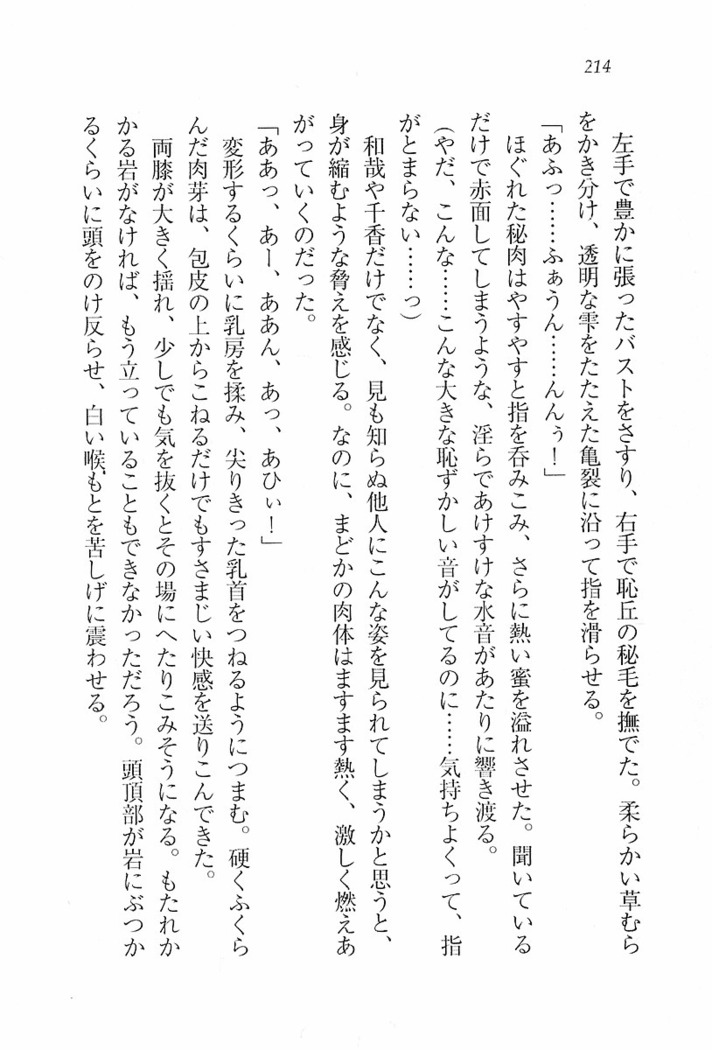 214
左手で豊かに張ったバストをさすり、右手で恥丘の秘毛を撫でた。柔らかい草むら
をかき分け、透明な雫をたたえた亀裂に沿って指を滑らせる。
「あふっ……ふぁうん……んんぅ！」
ほぐれた秘肉はやすやすと指を呑みこみ、さらに熱い蜜を溢れさせた。聞いている
だけで赤面してしまうような、淫らであけすけな水音があたりに響き渡る。
(やだ、こんな……こんな大きな恥ずかしい音がしてるのに……気持ちよくって、指
がとまらない……っ)
和哉や千香だけでなく、見も知らぬ他人にこんな姿を見られてしまうかと思うと、
身が縮むような脅えを感じる。なのに、まどかの肉体はますます熱く、激しく燃えあ
がっていくのだった。
「ああっ、あー、ああん、あっ、あひぃ！」
変形するくらいに乳房を揉み、尖りきった乳首をつねるようにつまむ。硬くふくら
んだ肉芽は、包皮の上からこねるだけでもすさまじい快感を送りこんできた。
両膝が大きく揺れ、少しでも気を抜くとその場にへたりこみそうになる。もたれか
かる岩がなければ、もう立っていることもできなかっただろう。頭頂部が岩にぶつか
るくらいに頭をのけ反らせ、白い喉もとを苦しげに震わせる。